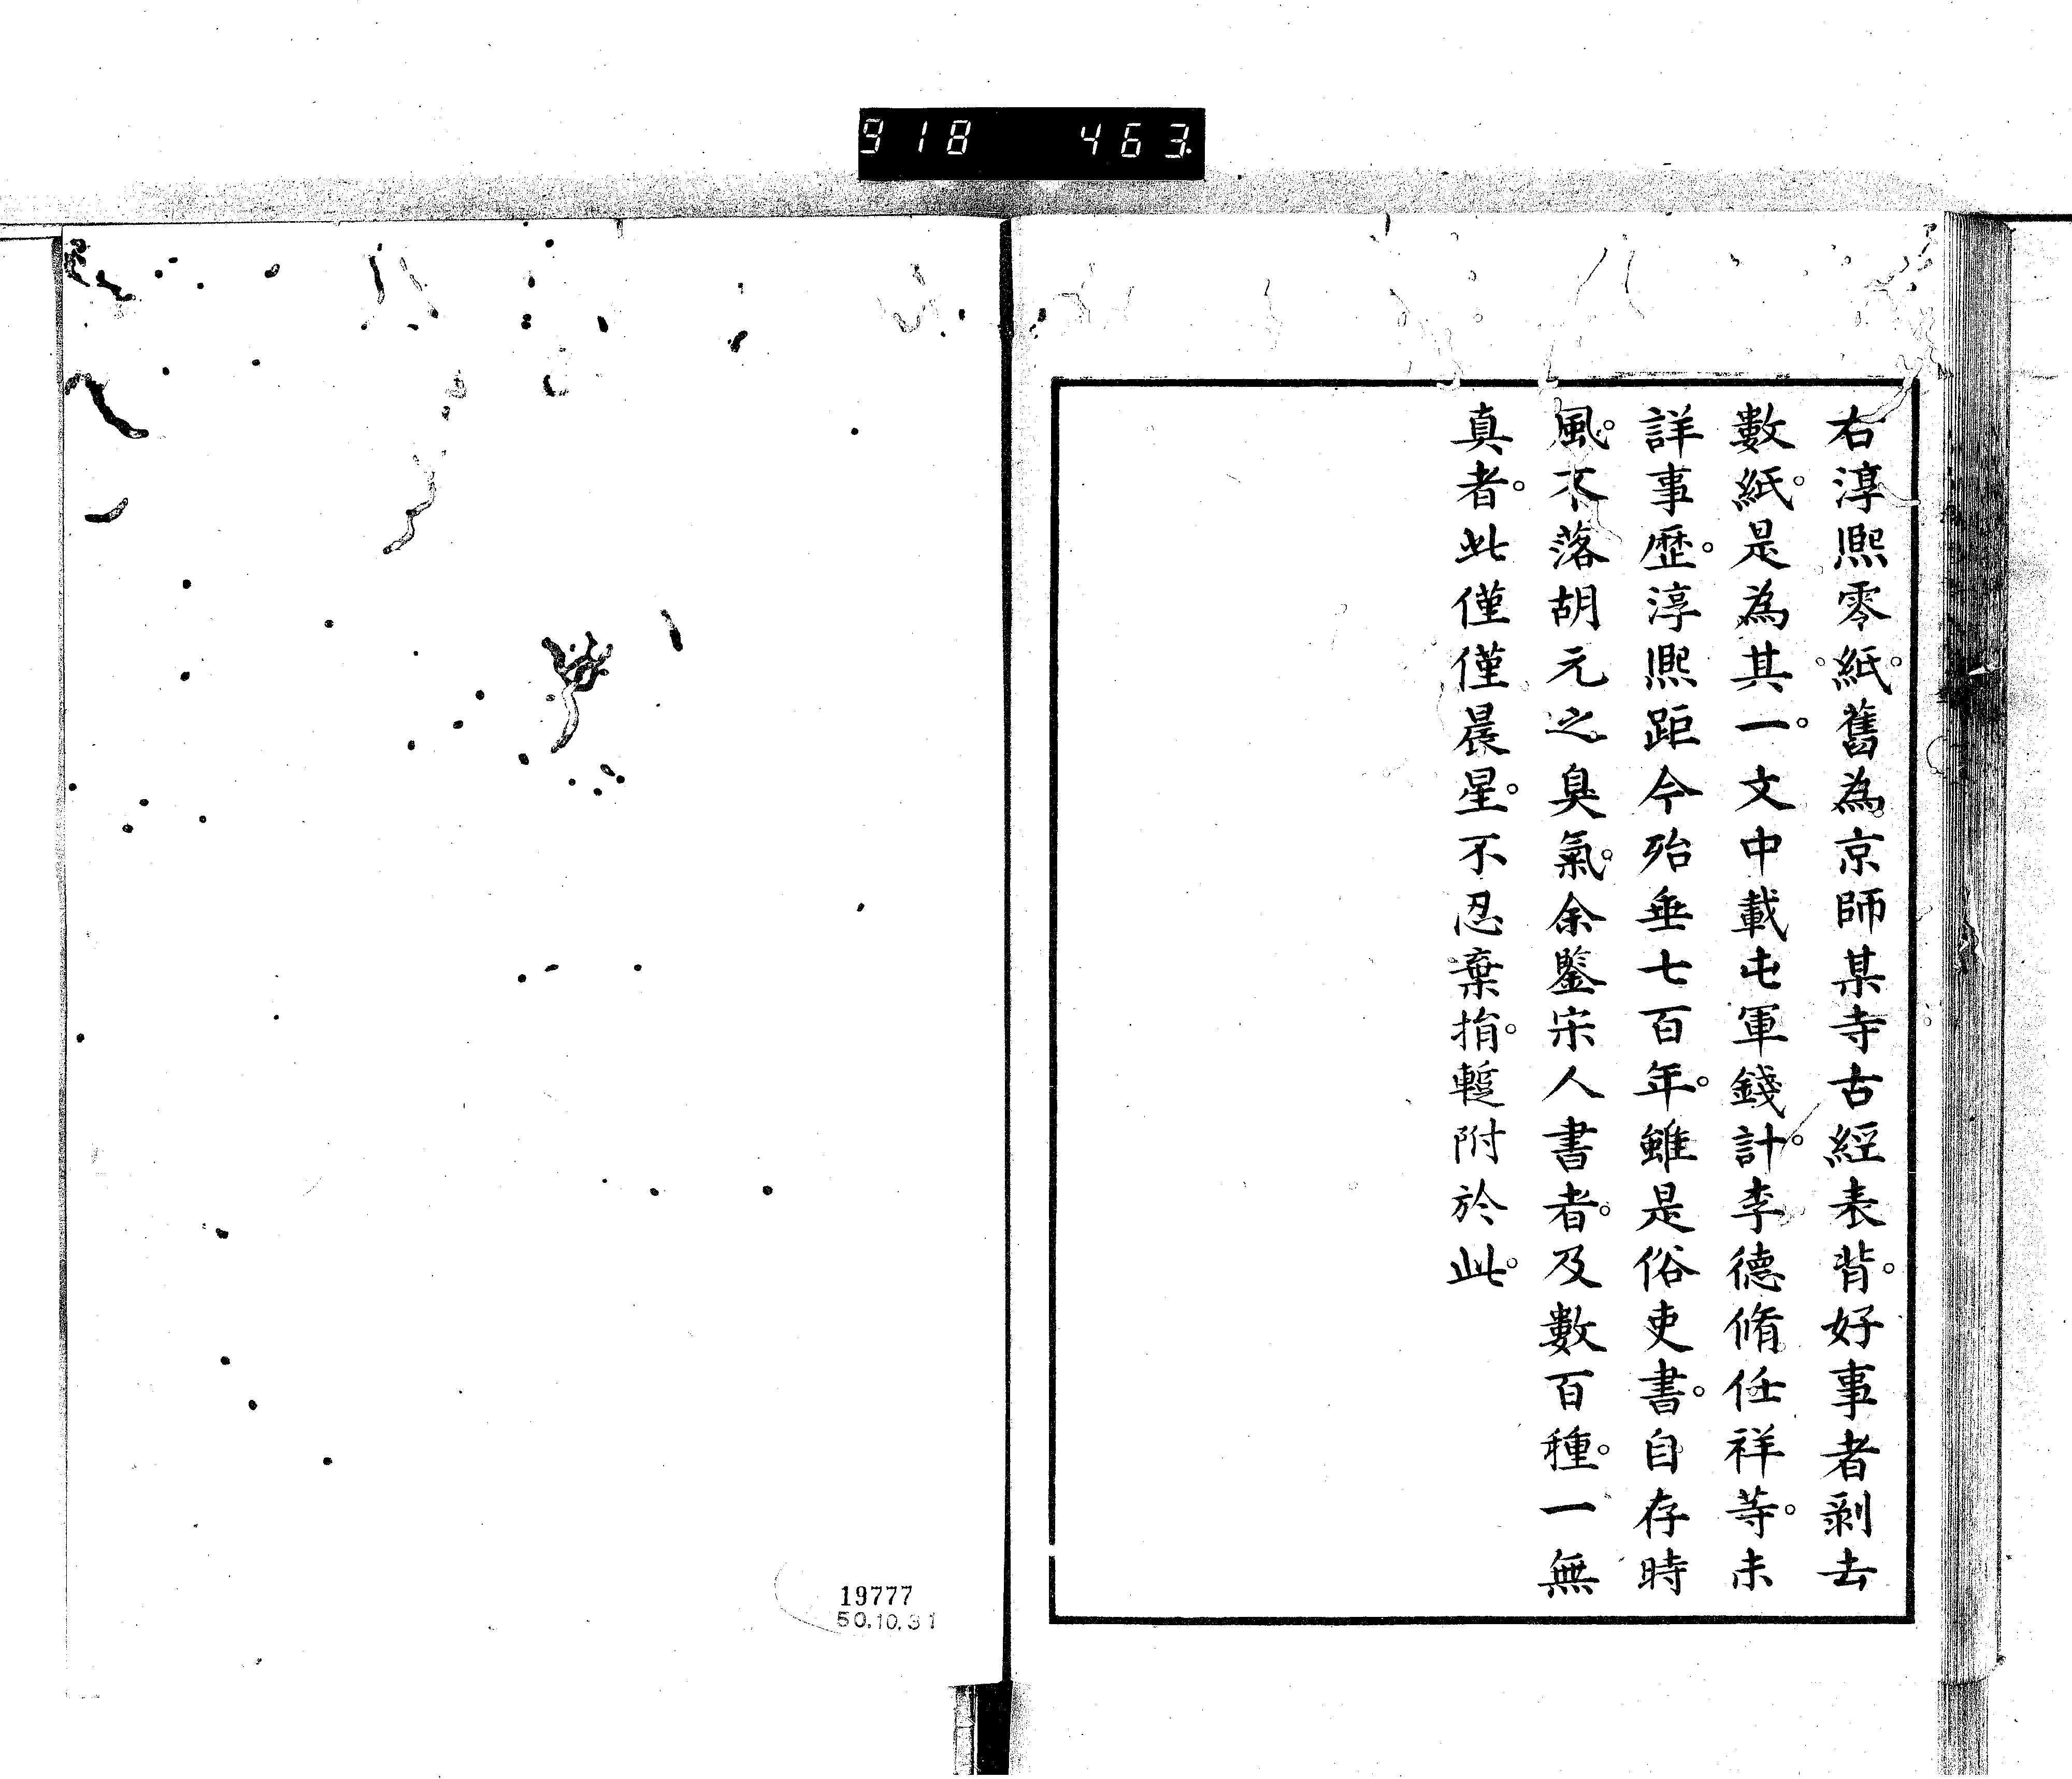 918 463.
右淳熙零紙。舊為京師某寺古經表背。好事者剝去
數紙。是為其一。文中載屯軍錢計。李德脩任祥等。未
詳事歷。淳熙距今殆垂七百年。雖是俗吏書。自存時
風。不落胡元之臭氣。余鑒宋人書者。及數百種。一無
真者。此僅僅晨星。不忍棄捐。蹔附於此。
19777
50.10.31